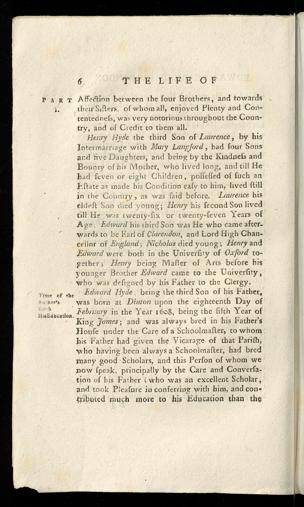 6 THE LIFE OF
PART I.
Affection between the four Brothers, and towards
their Sisters, of whom all, enjoyed Plenty and Con-
tentedness, was very notorious throughout the Coun-
try, and of Credit to them all.
Henry Hyde the third Son of Laurence, by his
Intermarriage with Mary Langford, had four Sons
and five Daughters, and being by the Kindness and
Bounty of his Mother, who lived long, and till He
had seven or eight Children, possessed of such an
Estate as made his Condition easy to him, lived still
in the Country, as was said before. Laurence his
eldest Son died young; Henry his second Son lived
till He was twenty-six or twenty-seven Years of
Age. Edward his third Son was He who came after-
wards to be Earl of Clarendon, and Lord High Chan-
cellor of England; Nicholas died young; Henry and
Edward were both in the University of Oxford to-
gether; Henry being Master of Arts before his
younger Brother Edward came to the University,
who was designed by his Father to the Clergy.
Edward Hyde, being the third Son of his Father,
Time of the Author's Birth His Education.
was born at Dinton upon the eighteenth Day of
February in the Year 1608, being the fifth Year of
King James; and was always bred in his Father's
House under the Care of a Schoolmaster, to whom
his Father had given the Vicarage of that Parish,
who having been always a Schoolmaster, had bred
many good Scholars, and this Person of whom we
now speak, principally by the Care and Conversa-
tion of his Father (who was an excellent Scholar,
and took Pleasure in conferring with him, and con-
tributed much more to his Education than the